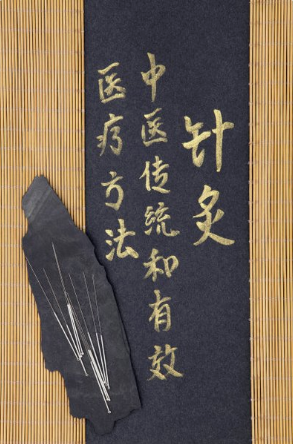 针灸
中医传统和有效
医疗方法